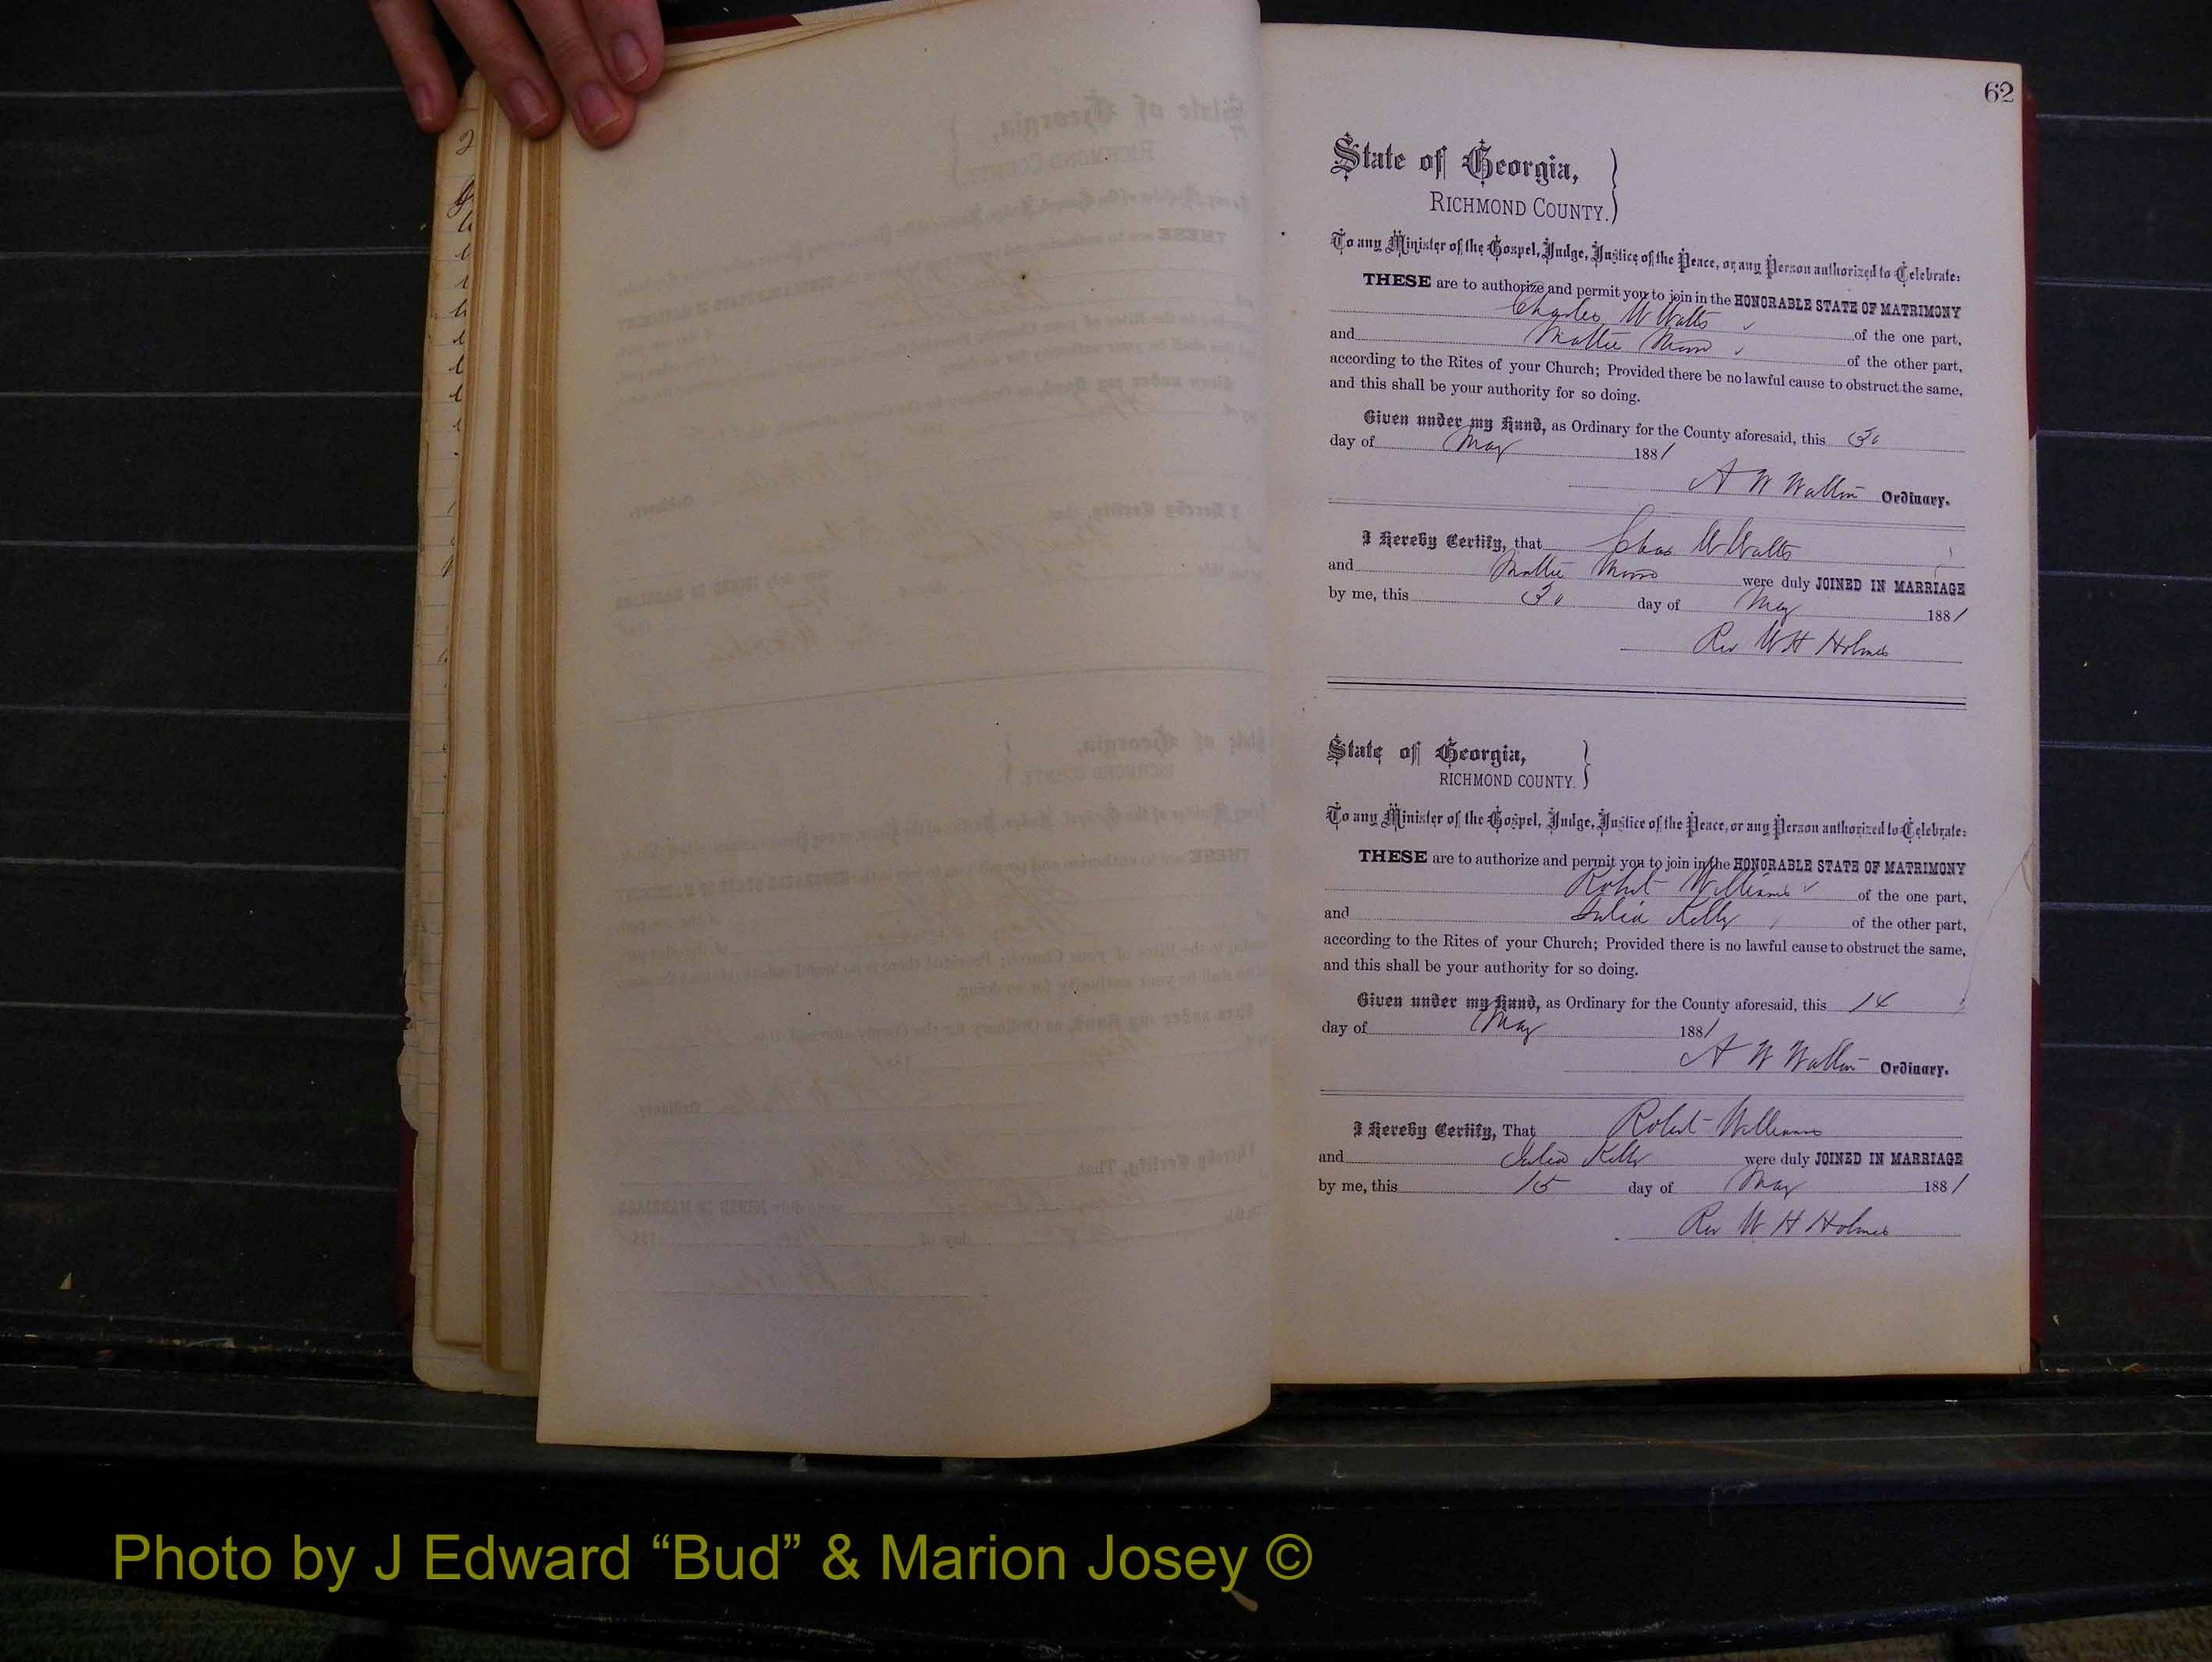 62
State of Georgia,
RICHMOND COUNTY.
To any Minister of the Gospel, Judge, Justice of the Peace, or any Person authorized to Celebrate:
THESE are to authorize and permit you to join in the HONORABLE STATE OF MATRIMONY
Charles W Watts of the one part,
and Mattie of the other part,
according to the Rites of your Church; Provided there be no lawful cause to obstruct the same,
and this shall be your authority for so doing.
Given under my Hand, as Ordinary for the County aforesaid, this 30
day of May 1881
A W Walton Ordinary.
I Hereby Certify, that Chas W Watts
and Mattie were duly JOINED IN MARRIAGE
by me, this 30 day of May 1881
Rev W H Holmes
State of Georgia,
RICHMOND COUNTY.
To any Minister of the Gospel, Judge, Justice of the Peace, or any Person authorized to Celebrate:
THESE are to authorize and permit you to join in the HONORABLE STATE OF MATRIMONY
Robert Williams of the one part,
and Julia Kelly of the other part,
according to the Rites of your Church; Provided there is no lawful cause to obstruct the same,
and this shall be your authority for so doing.
Given under my Hand, as Ordinary for the County aforesaid, this 14
day of May 1881
A W Walton Ordinary.
I Hereby Certify, That Robert Williams
and Julia Kelly were duly JOINED IN MARRIAGE
by me, this 15 day of May 1881
Rev W H Holmes
Photo by J Edward “Bud” & Marion Josey ©